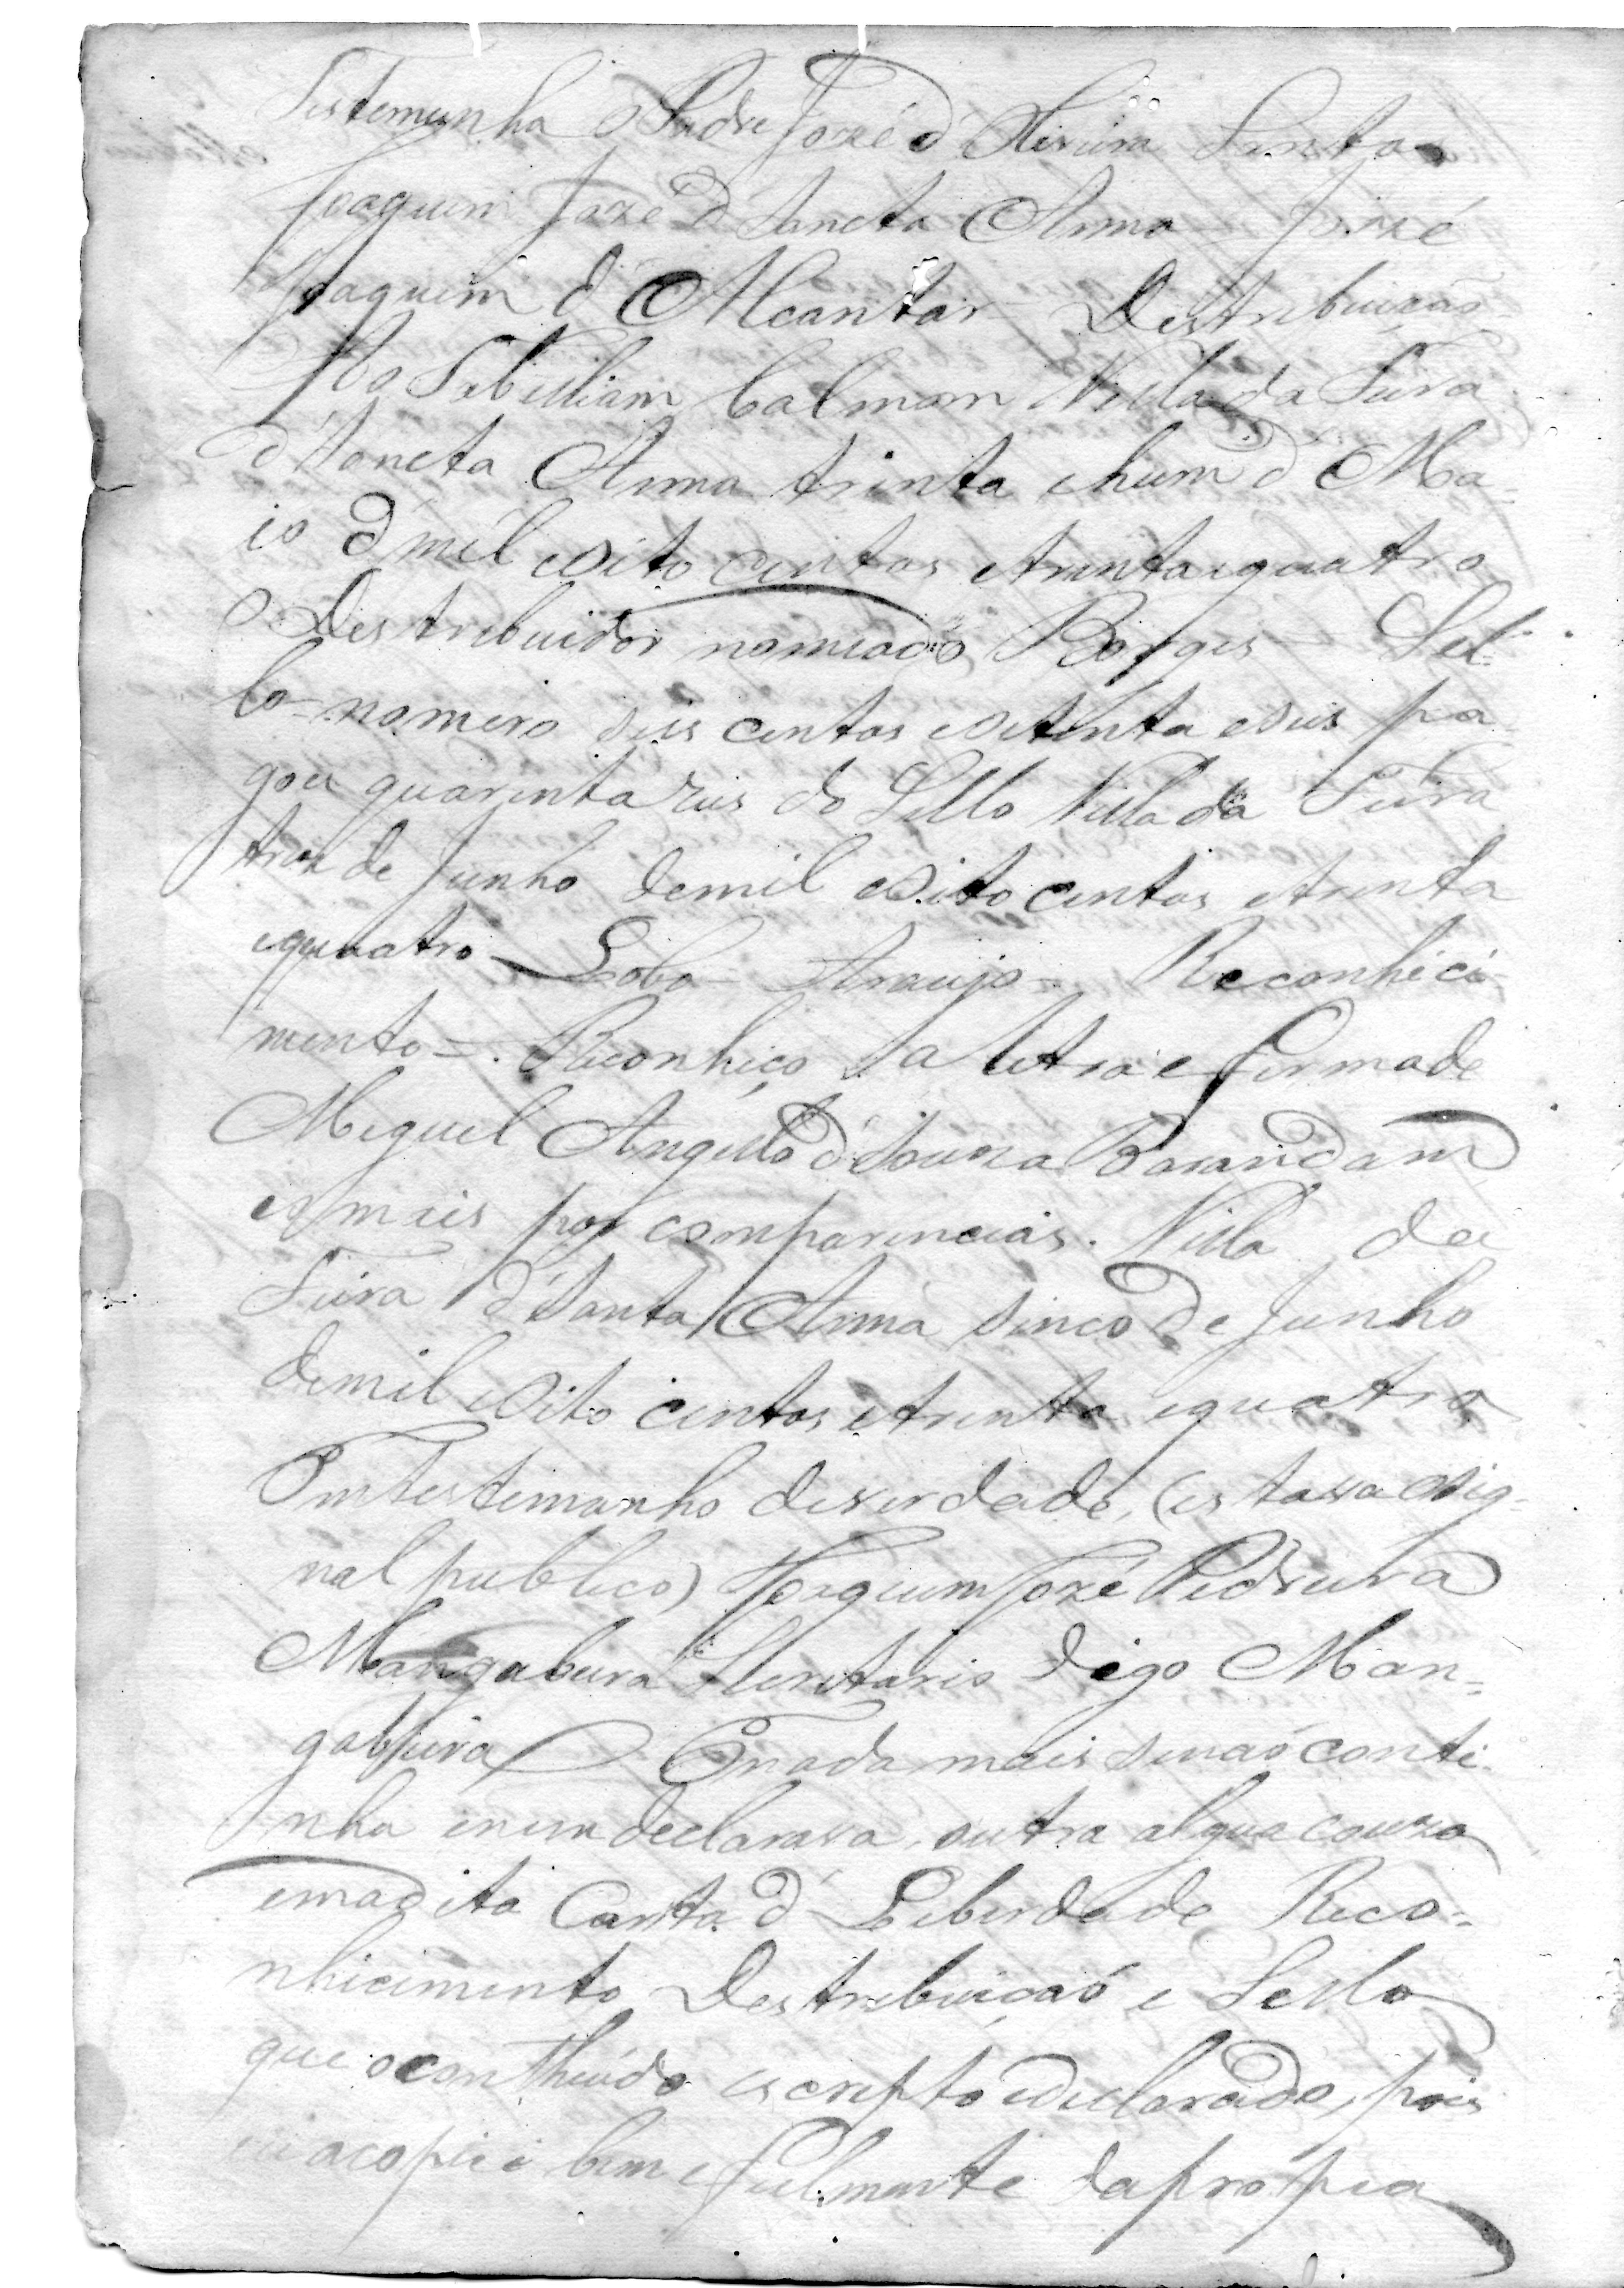 Testemunha o Padre Jozé d' Oliveira Santos
Joaquim Jozé d' Sancta Anna Jozé
Joaquim d' Alcantar Destribuicaõ
Ao Tabelliam Calmon Villa da Feira
d' Sancta Anna trinta ehum d' Ma=
io d' mil eoito centos etrinta equatro
O Destrebuidor nomeado Borges Sel=
lo = nomero seis centos esetenta eseis pa
gou quarenta reis do Sello Villa da Feira
tres de Junho demil eoito centos etrinta
equatro Lobo Araujo = Reconheci
mento =. Reconheço a letra e firmade
Miguel Angello d' Souza Barandam
emais por comparencias. Villa da
Feira d' Santa Anna sinco de Junho
demil eoito centos etrinta equatro
Emtestemunho deverdade, (estava osig=
nal publico) Joaquim Jozé Pedreira
Mangabeira Secretario digo Man=
gabeira Enada mais senaõ conti
nha enem declarava outra algua couza
emadita Carta d' Leberdade Reco=
nhicimento Destrebuicaõ e Sello
que ocontheúdo escrepto edeclarado, pois
eu acopiei bem efielmente daprópria